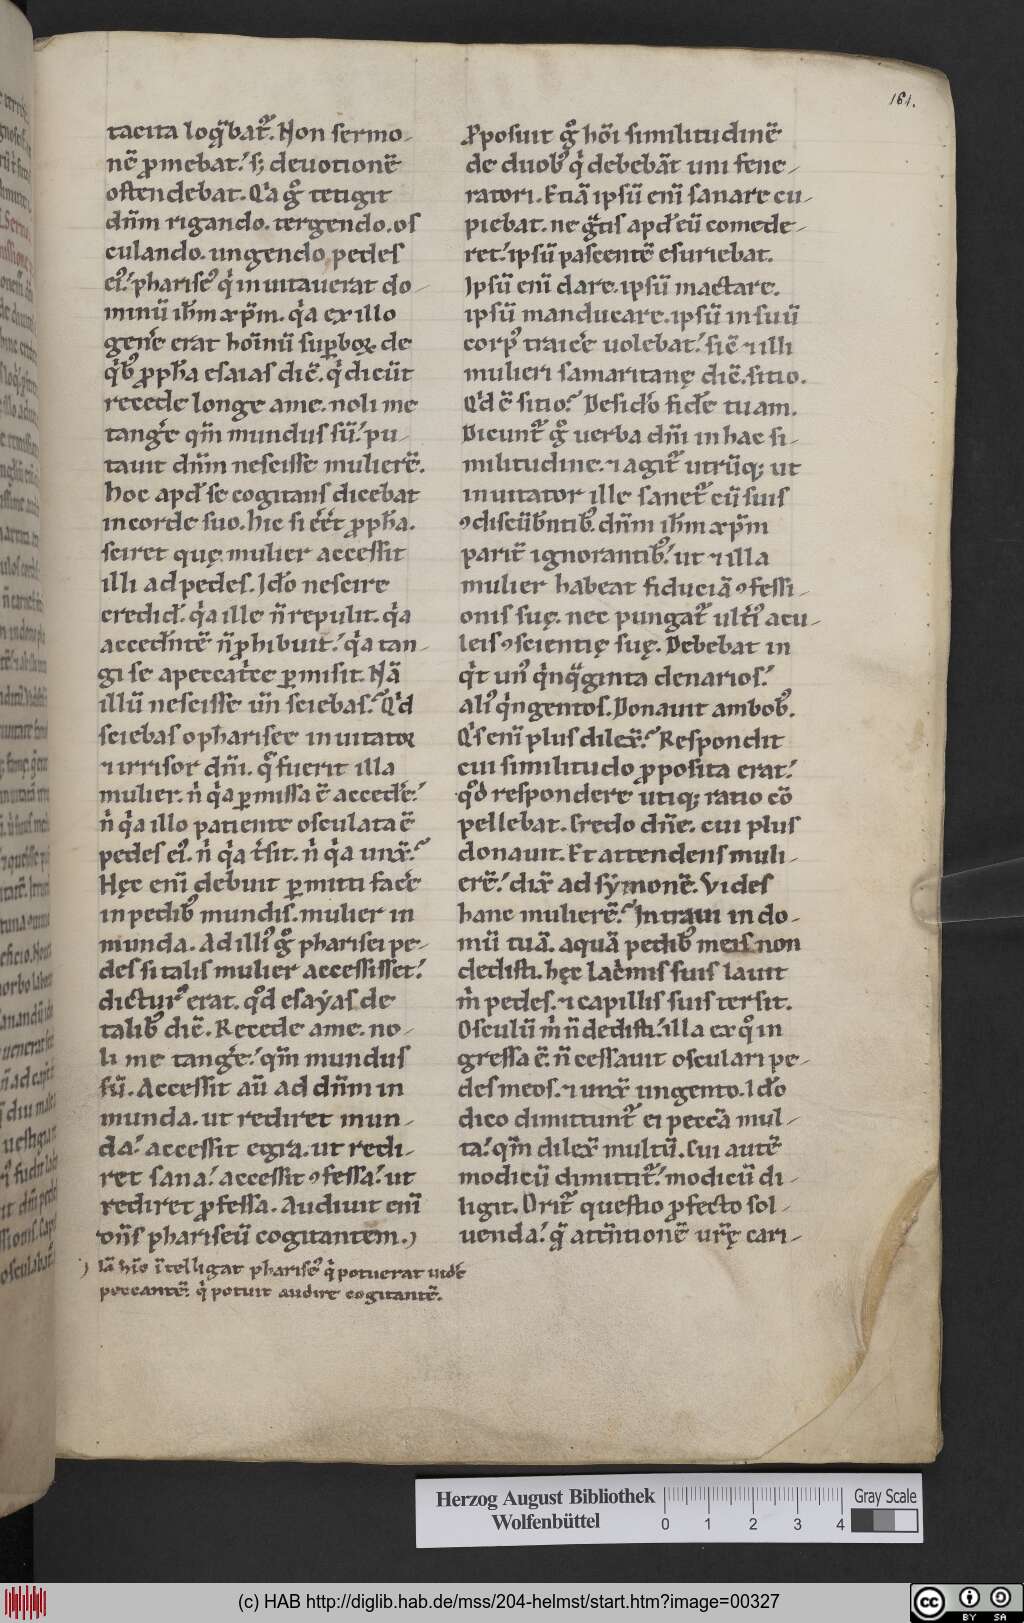 161.
tacita loq̅bat᷑. Non sermo-
nē ꝓmebat. s; deuotionē
ostendebat. Qͥa gͦ tetigit
dn̄m rigando. tergendo. os
culando. ungendo pedes
eiꝰ. phariseꝰ qͥ inuitauerat do-
minū ih̄m xp̄m. qͥa ex illo
gene̓ erat hoīnū suꝑboꝝ de
qͥbꝰ ꝓph̄a esaias dic̄. qͥ dicūt
recede longe a me. noli me
tang̓e qm̄ mundus sū. pu-
tauit dn̄m nescisse mulierē.
hoc apd̓ se cogitans dicebat
in corde suo. hic si ee̓t ꝓph̄a.
sciret quę mulier accessit
illi ad pedes. Ido̓ nescire
credid̓. qͥa ille n̄ repulit. qͥa
acced̓ntē n̄ ꝓhibuit. qͥa tan-
gi se a peccat̓ce ꝑmisit. Nā
illū nescisse un̄ sciebas. Qͥd
sciebas o pharisee inuitatoꝛ
⁊ irrisor dn̄i. q̄ fuerit illa
mulier. n̓ qͥa ꝑmissa ē acced̓e.
n̓ qͥa illo patiente osculata ē
pedes eiꝰ. n̓ qͥa t̓sit. n̓ qͥa unx̄.
Hęc enī debuit ꝑmitti fac̓e
in pedibꝰ mundis. mulier in
munda. Ad illiꝰ gͦ pharisei pe-
des si talis mulier accessisset.
dicturꝰ erat. qͦd esaẏas de
talibꝰ dic̄. Recede a me. no-
li me tang̓e. qm̄ mundus
sū. Accessit aū ad dn̄m in
munda. ut rediret mun-
da. accessit egra. ut redi-
ret sana. accessit ꝯfessa. ut
rediret ꝓfessa. Audiuit enī
on̄s phariseū cogitantem.
Iā hic̄ ītelligat phariseꝰ qͥ potuerat uid̓e
peccantē. qͥ potuit audire cogitantē.
Ꝓposuit gͦ hōi similitudinē
de duobꝰ qͥ debebāt uni fene-
ratori. Etiā ipsū enī sanare cu-
piebat. ne gͣtis apd̓ eū comede-
ret. ipsū pascentē esuriebat.
Ipsū enī dare. ipsū mactare.
ipsū manducare. ipsū in suū
corpꝰ traic̓e uolebat. sic̄ ⁊ illi
mulieri samaritanę dic̄. sitio.
Qͥd ē sitio. Desido̓ fide̓ tuam.
Dicunt᷑ gͦ uerba dn̄i in hac si-
militudine. ⁊ agit᷑ utrūq; ut
inuitator ille sanet᷑ cū suis
ꝯdiscūb̓ntibꝰ. dn̄m ih̄m xp̄m
parit̓ ignorantibꝰ. ut ⁊ illa
mulier habeat fiduciā ꝯfessi-
onis suę. nec pungat᷑ ult̓iꝰ acu-
leis ꝯscientię suę. Debebat in
qͥt unꝰ qͥnqͣginta denarios.
aliꝰ qͥngentos. Donauit ambobꝰ.
Qͥs enī plus dilex̄. Respondit
cui similitudo ꝓposita erat.
qͦd respondere utiq; ratio cō
pellebat. Credo dn̄e. cui plus
donauit. Et attendens muli-
erē. dix̄ ad sẏmonē. Vides
hanc mulierē. Intraui in do-
mū tuā. aquā pedibꝰ meis non
dedisti. hęc lac̓mis suis lauit
m̓ pedes. ⁊ capillis suis tersit.
Osculū m̓ n̄ dedisti. illa ex qͦ in
gressa ē. n̄ cessauit osculari pe-
des meos. ⁊ unx̄ ungento. Ido̓
dico dimittunt᷑ ei peccā mul-
ta. qm̄ dilex̄ multū. Cui autē
modicū dimittit᷑. modicū di-
ligit. Orit᷑ questio ꝓfecto sol-
uenda. q̄ attn̄tionē ur̄ę cari-
Herzog August Bibliothek
Wolfenbüttel
0 1 2 3 4
Gray Scale
(c) HAB http://diglib.hab.de/mss/204-helmst/start.htm?image=00327
cc BY SA